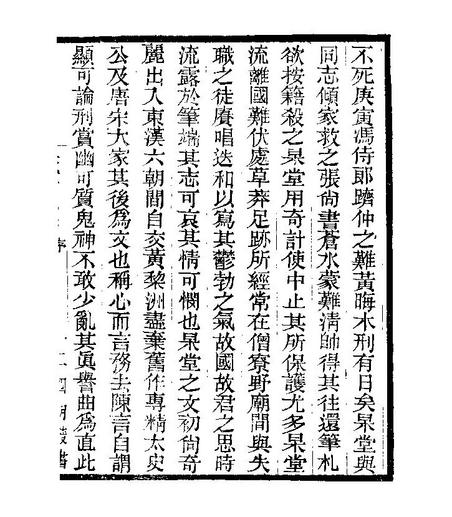 不死庚寅馮侍郎躋仲之難黃晦木刑有日矣杲堂與
同志傾家救之張尚書蒼水蒙難清帥得其往還筆札
欲按籍殺之杲堂用奇計使中止其所保護尤多杲堂
流離國難伏處草莽足跡所經常在僧寮野廟間與失
職之徒賡唱迭和以寫其鬱勃之氣故國故君之思時
流露於筆端其志可哀其情可憫也杲堂之文初尙奇
麗出入東漢六朝間自交黃黎洲盡棄舊作專精太史
公及唐宋大家其後為文也稱心而言務去陳言自謂
顯可論刑賞幽可質鬼神不敢少亂其眞譽曲為直此
序
四明叢書